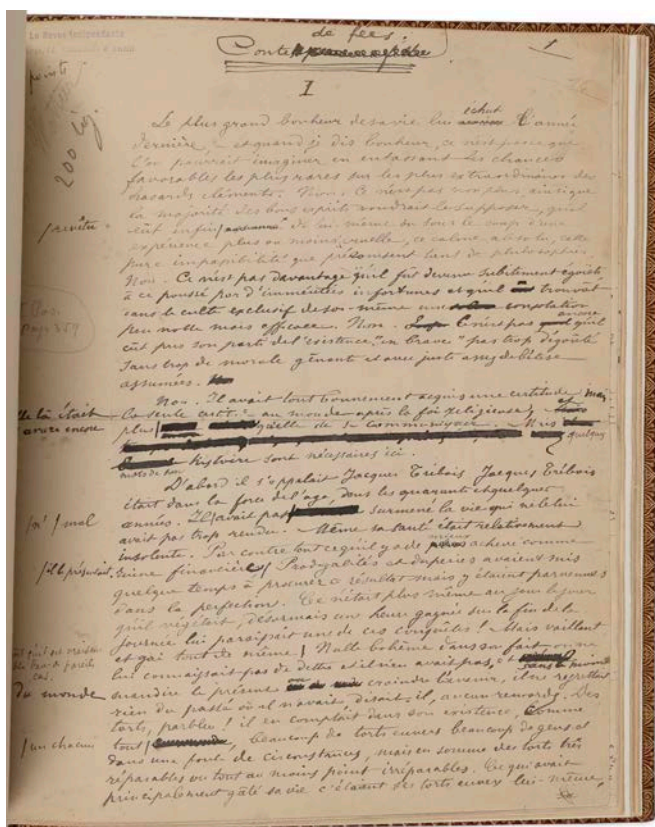 La Revue Indépendante
de fées
Conte
1
I
200 lig.
Le plus grand bonheur de sa vie lui échut l'année
dernière, et quand je dis bonheur, ce n'est pas ce que
l'on pourrait imaginer en entassant les chances
favorables les plus rares sur les plus extraordinaires des
hasards cléments. Non. Ce n'est pas non plus, ainsi que
la majorité des bons esprits voudrait le supposer, qu'il
/revêtu
eût enfin de lui-même ou sous le coup d'une
expérience plus ou moins cruelle, ce calme absolu, cette
pure impassibilité que présomsent tant de philosophies
Non. Ce n'est pas davantage qu'il fût devenu subitement égoïste
à ce poussé par d'imméritées infortunes et qu'il trouvait
dans le culte exclusif de soi-même une consolation
peu noble mais efficace. Non. Ce n'est pas encore qu'il
eût pris son parti de l'existence, "en brave" pas trop dégoûté
sans trop de morale gênante et avec juste assez de bêtise
assumées.
Non. Il avait tout bonnement acquis une certitude,
la seule au monde après la foi religieuse,
plus qu'elle de se communiquer. Mais quelques
mots de son histoire sont nécessaires ici.
D'abord il s'appelait Jacques Trébois. Jacques Trébois
était dans la force de l'âge, dans les quarante et quelques
/n' /mal
années. Il avait pas surmené la vie qui ne le lui
avait pas trop rendu. Même sa santé était relativement
insolente. Par contre tout ce qu'il y a de mieux achevé comme
/il présentait.
ruine financière/ Prodigalités et duperies avaient mis
quelque temps à procurer ce résultat mais y étaient parvenues
dans la perfection. Ce n'était plus même au jour le jour
qu'il végétait, désormais une heure gagnée sur la fin de la
journée lui paraissait une de ces conquêtes! Mais vaillant
et gai tout de même! Nulle bohème dans son fait, on ne
lui connaissait pas de dettes et il n'en avait pas, et
du monde
maudire le présent craindre l'avenir, il ne regrettait
rien du passé où il n'avait, disait-il, aucun remords. Des
torts, parbleu! il en comptait dans son existence, comme
/un chacun
tout/ beaucoup de torts envers beaucoup de gens et
dans une foule de circonstances, mais en somme des torts très
réparables ou tout au moins point irréparables. Ce qui avait
principalement gâté sa vie c'étaient ses torts envers lui-même,